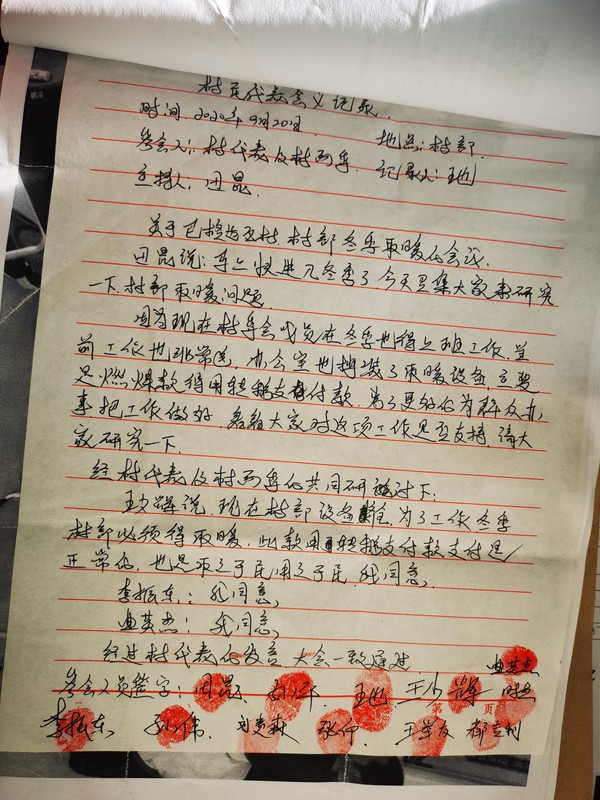 村民代表会议记录.
时间：2020年9月20日. 地点：村部.
参会人：村代表及村两委 记录人：王艳
主持人：田昆.
关于巴 村 村部冬季取暖的会议.
田昆说：马上快进入冬季了今天召集大家来研究
一下村部取暖问题
因为现在村委会成员在冬季也得上班工作，目
前工作也非常忙 办公室也 装了取暖设备主要
是燃煤款得用转移支付款 为了更好的为群众办
事把工作做好 大家对这项工作是否支持 请大
家研究一下.
经村代表及村两委的共同研 讨下：
王少辉说，现在村部设备 全 为了工作冬季
村部必须得取暖，此款用转移支付款支付是
正常的，也是取之于民用之于民，我同意
李振东：我同意
曲英杰：我同意
经过村代表的发言，大会一致通过
曲英杰
参会人员签字：田昆 王艳 王少辉
第 页
李振东 孙伟 刘 森 张 王学友